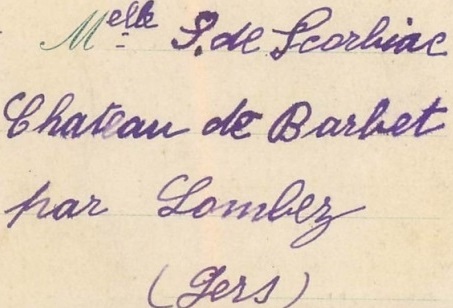 Melle S. de Scorbiac
Chateau de Barbet
par Lombez
(Gers)